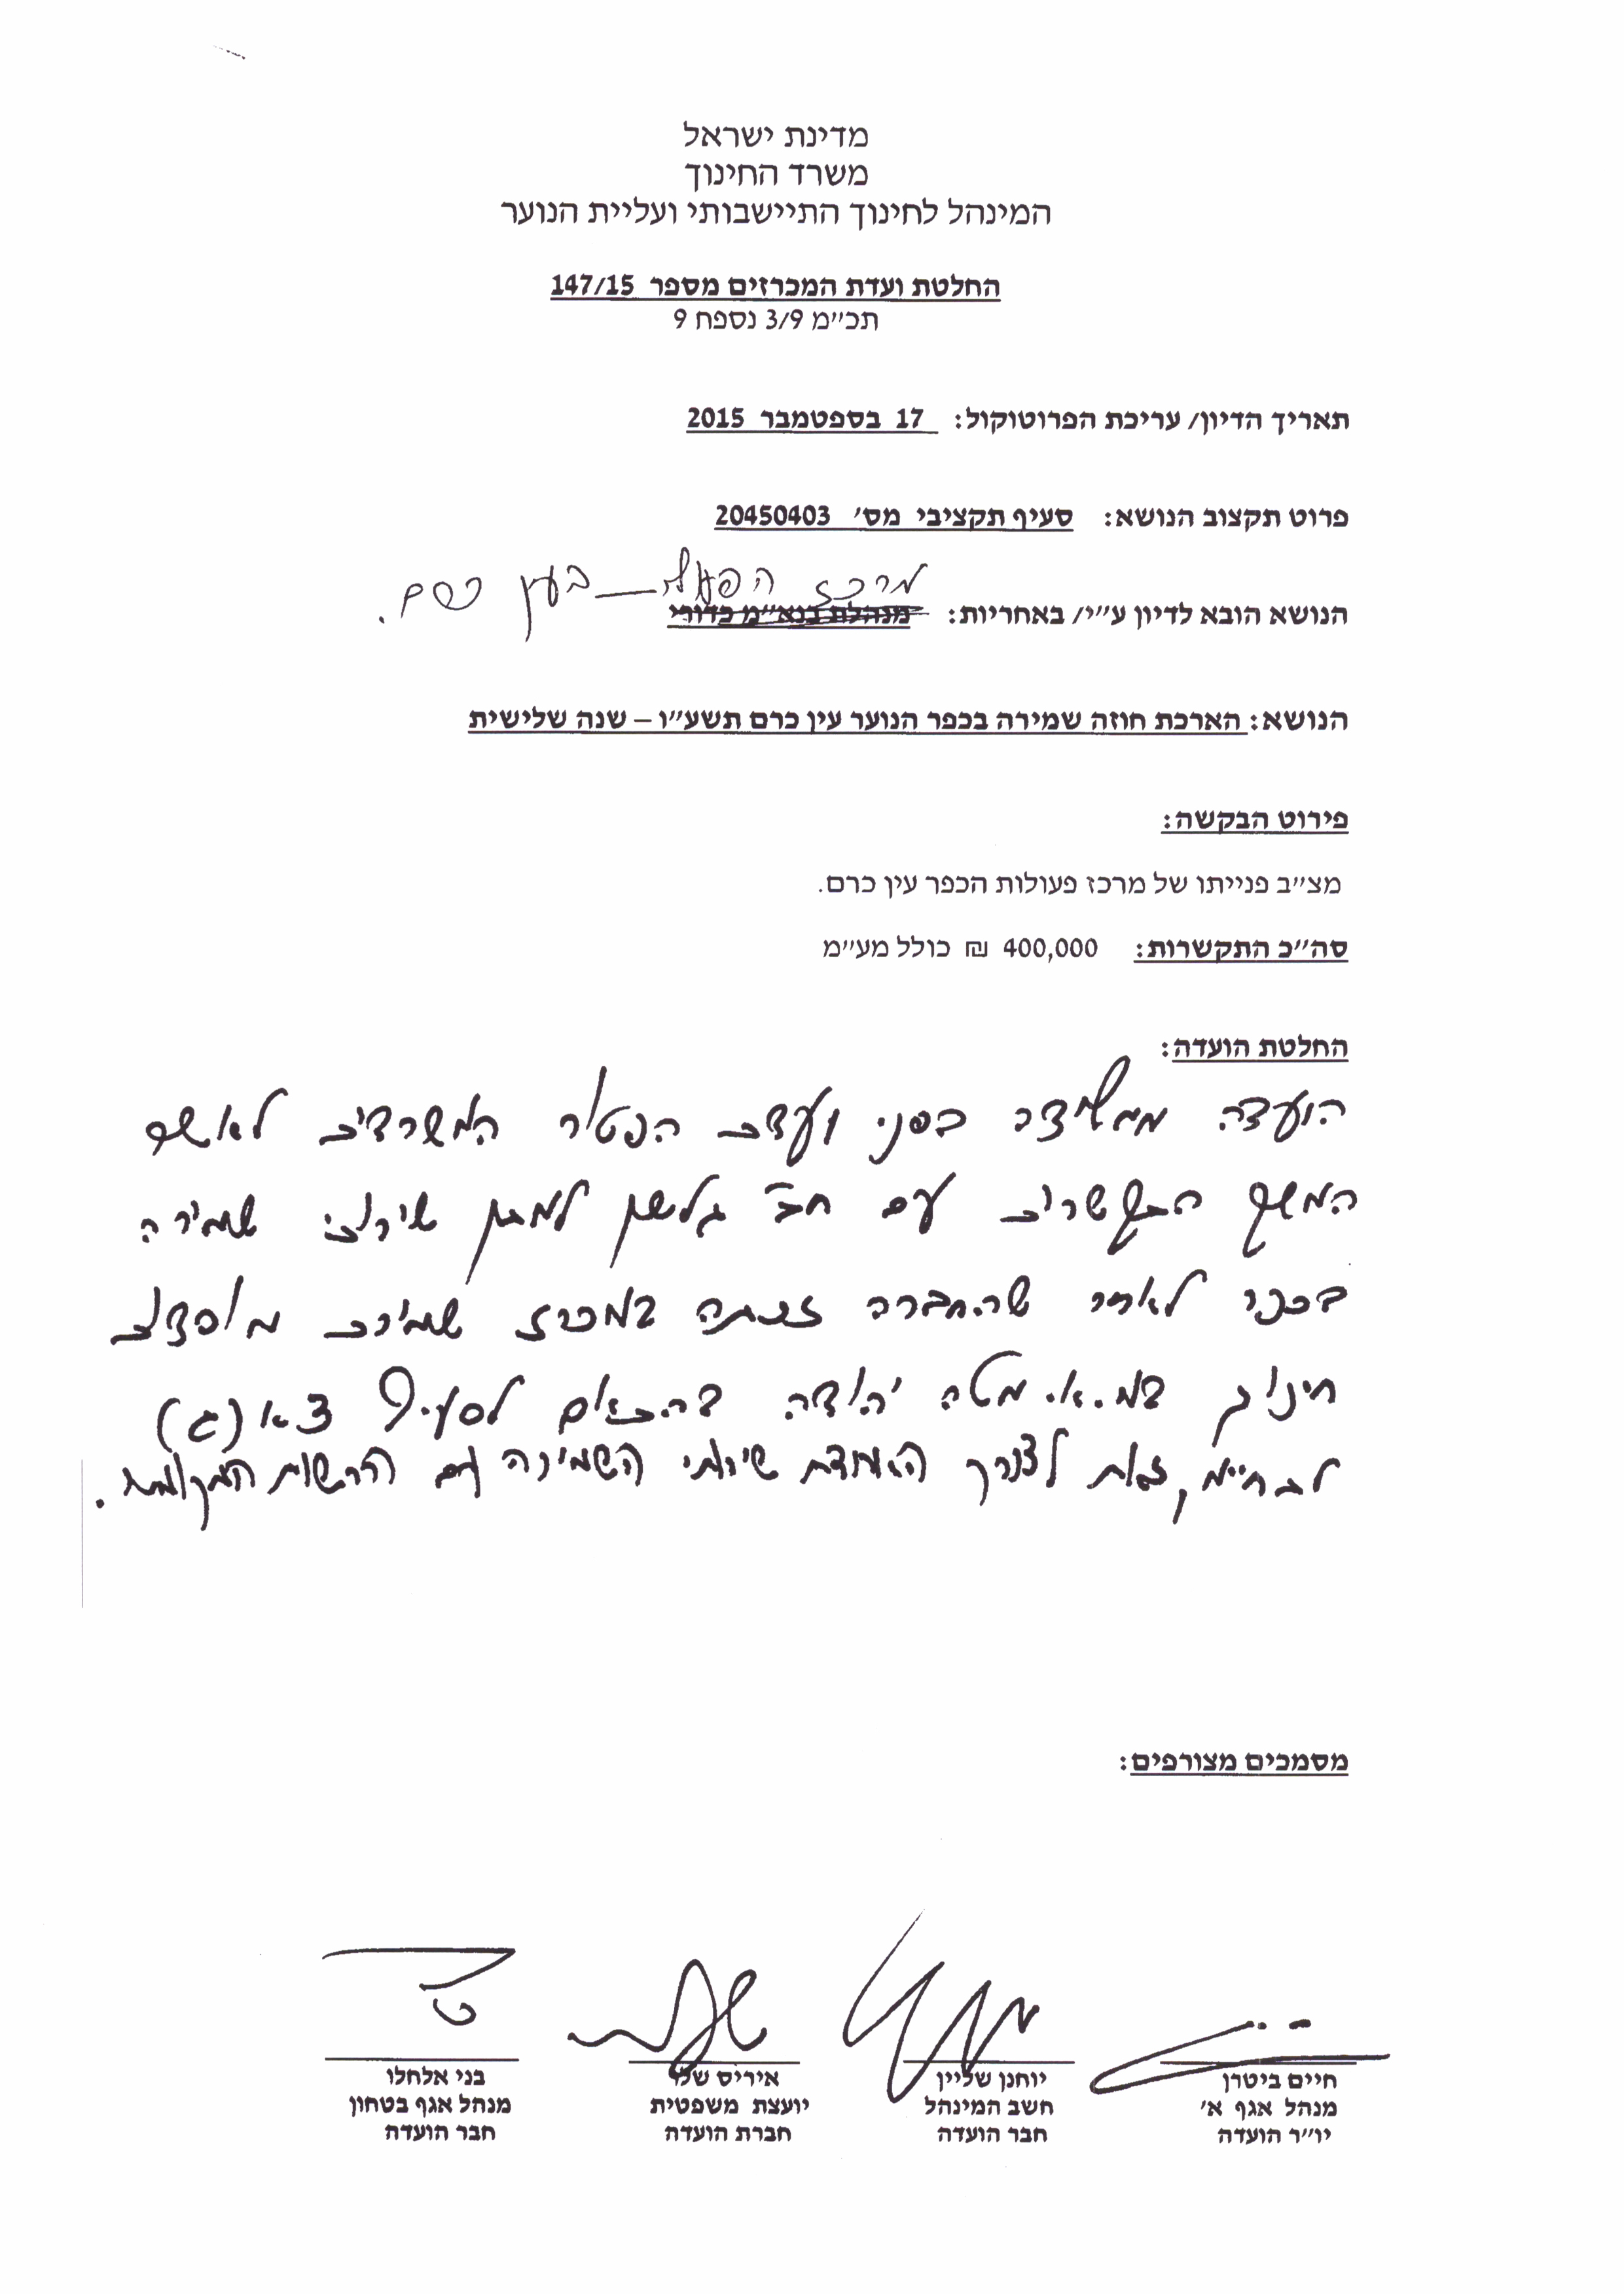 מדינת ישראל
משרד החינוך
המינהל לחינוך התיישבותי ועליית הנוער
החלטת ועדת המכרזים מספר 147/15
תכ״מ 3/9 נספח 9
תאריך הדיון/ עריכת הפרוטוקול: 17 בספטמבר 2015
פרוט תקצוב הנושא: סעיף תקציבי מס׳ 20450403
מרכז הפעלה – בעין כרם.
הנושא הובא לדיון ע״י/ באחריות: מנהלת בנא״מ כדורי
הנושא: הארכת חוזה שמירה בכפר הנוער עין כרם תשע״ו – שנה שלישית
פירוט הבקשה:
מצ״ב פנייתו של מרכז פעולות הכפר עין כרם.
סה״כ התקשרות: 400,000 ₪ כולל מע״מ
החלטת הועדה:
הועדה ממליצה בפני ועדת הפטור המשרדית לאשר
המשך התקשרות עם חב׳ גלשן למתן שירותי שמירה
בכפר לאחר שהחברה זכתה במכרז שמירת מוסדות
חינוך במ.א. מטה יהודה בהתאם לסעיף 3א (ג)
לתחי״מ, זאת לצורך האחדת שירותי השמירה עם הרשות המקומית.
מסמכים מצורפים:
חיים ביטרן יוחנן שליין איריס שלו בני אלחלו
מנהל אגף א׳ חשב המינהל יועצת משפטית מנהל אגף בטחון
יו״ר הועדה חבר הועדה חברת הועדה חבר הועדה